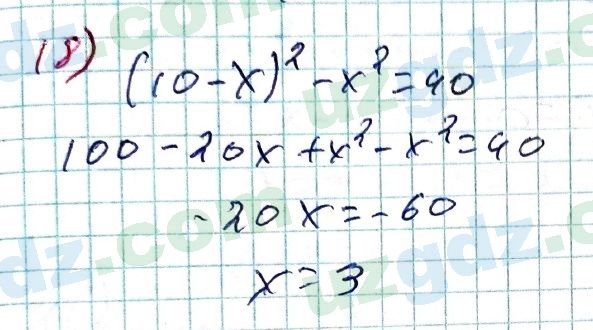 18) (10-x)² - x² = 40
100 - 20x + x² - x² = 40
-20x = -60
x = 3
uzgdz.com